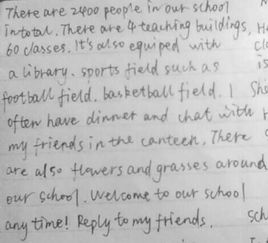 There are 2400 people in our school
intotal. There are 4 teaching buildings,
60 classes. It's also equiped with
a library. sports field such as
football field. basketball field. I
often have dinner and chat with
my friends in the canteen. There
are also flowers and grasses around
our school. Welcome to our school
any time! Reply to my friends.